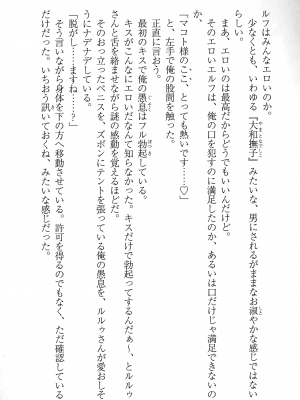 ルフはみんなエロいのか。
少なくとも、いわゆる『大和撫子』みたいな、男にされるがままなお淑やかな感じではない
らしい。
まあ、エロいのは最高だからどうでもいいんだけど。
そのエロいエルフは、俺の口を犯すのに満足したのか、あるいは口だけじゃ満足できないの
か、
「マコト様のここ、とっても熱いです……♡」
と、左手で俺の股間を触った。
正直に言おう。
最初のキスで俺の愚息はフル勃起している。
キスがこんなにエロいだなんて知らなかった。キスだけで勃起ってするんだぁ〜、とルルゥ
さんと舌を絡ませながら謎の感動を覚えるほどだ。
そのおっ立ったペニスを、ズボンにテントを張っている俺の愚息を、ルルゥさんが愛おしそ
うにナデナデしている。
「脱がし……ますね……？」
そう言いながら身体を下の方へ移動させている。許可を得るのでもなく、ただ確認している
だけだった。いちおう訊いておくね、みたいな感じだった。